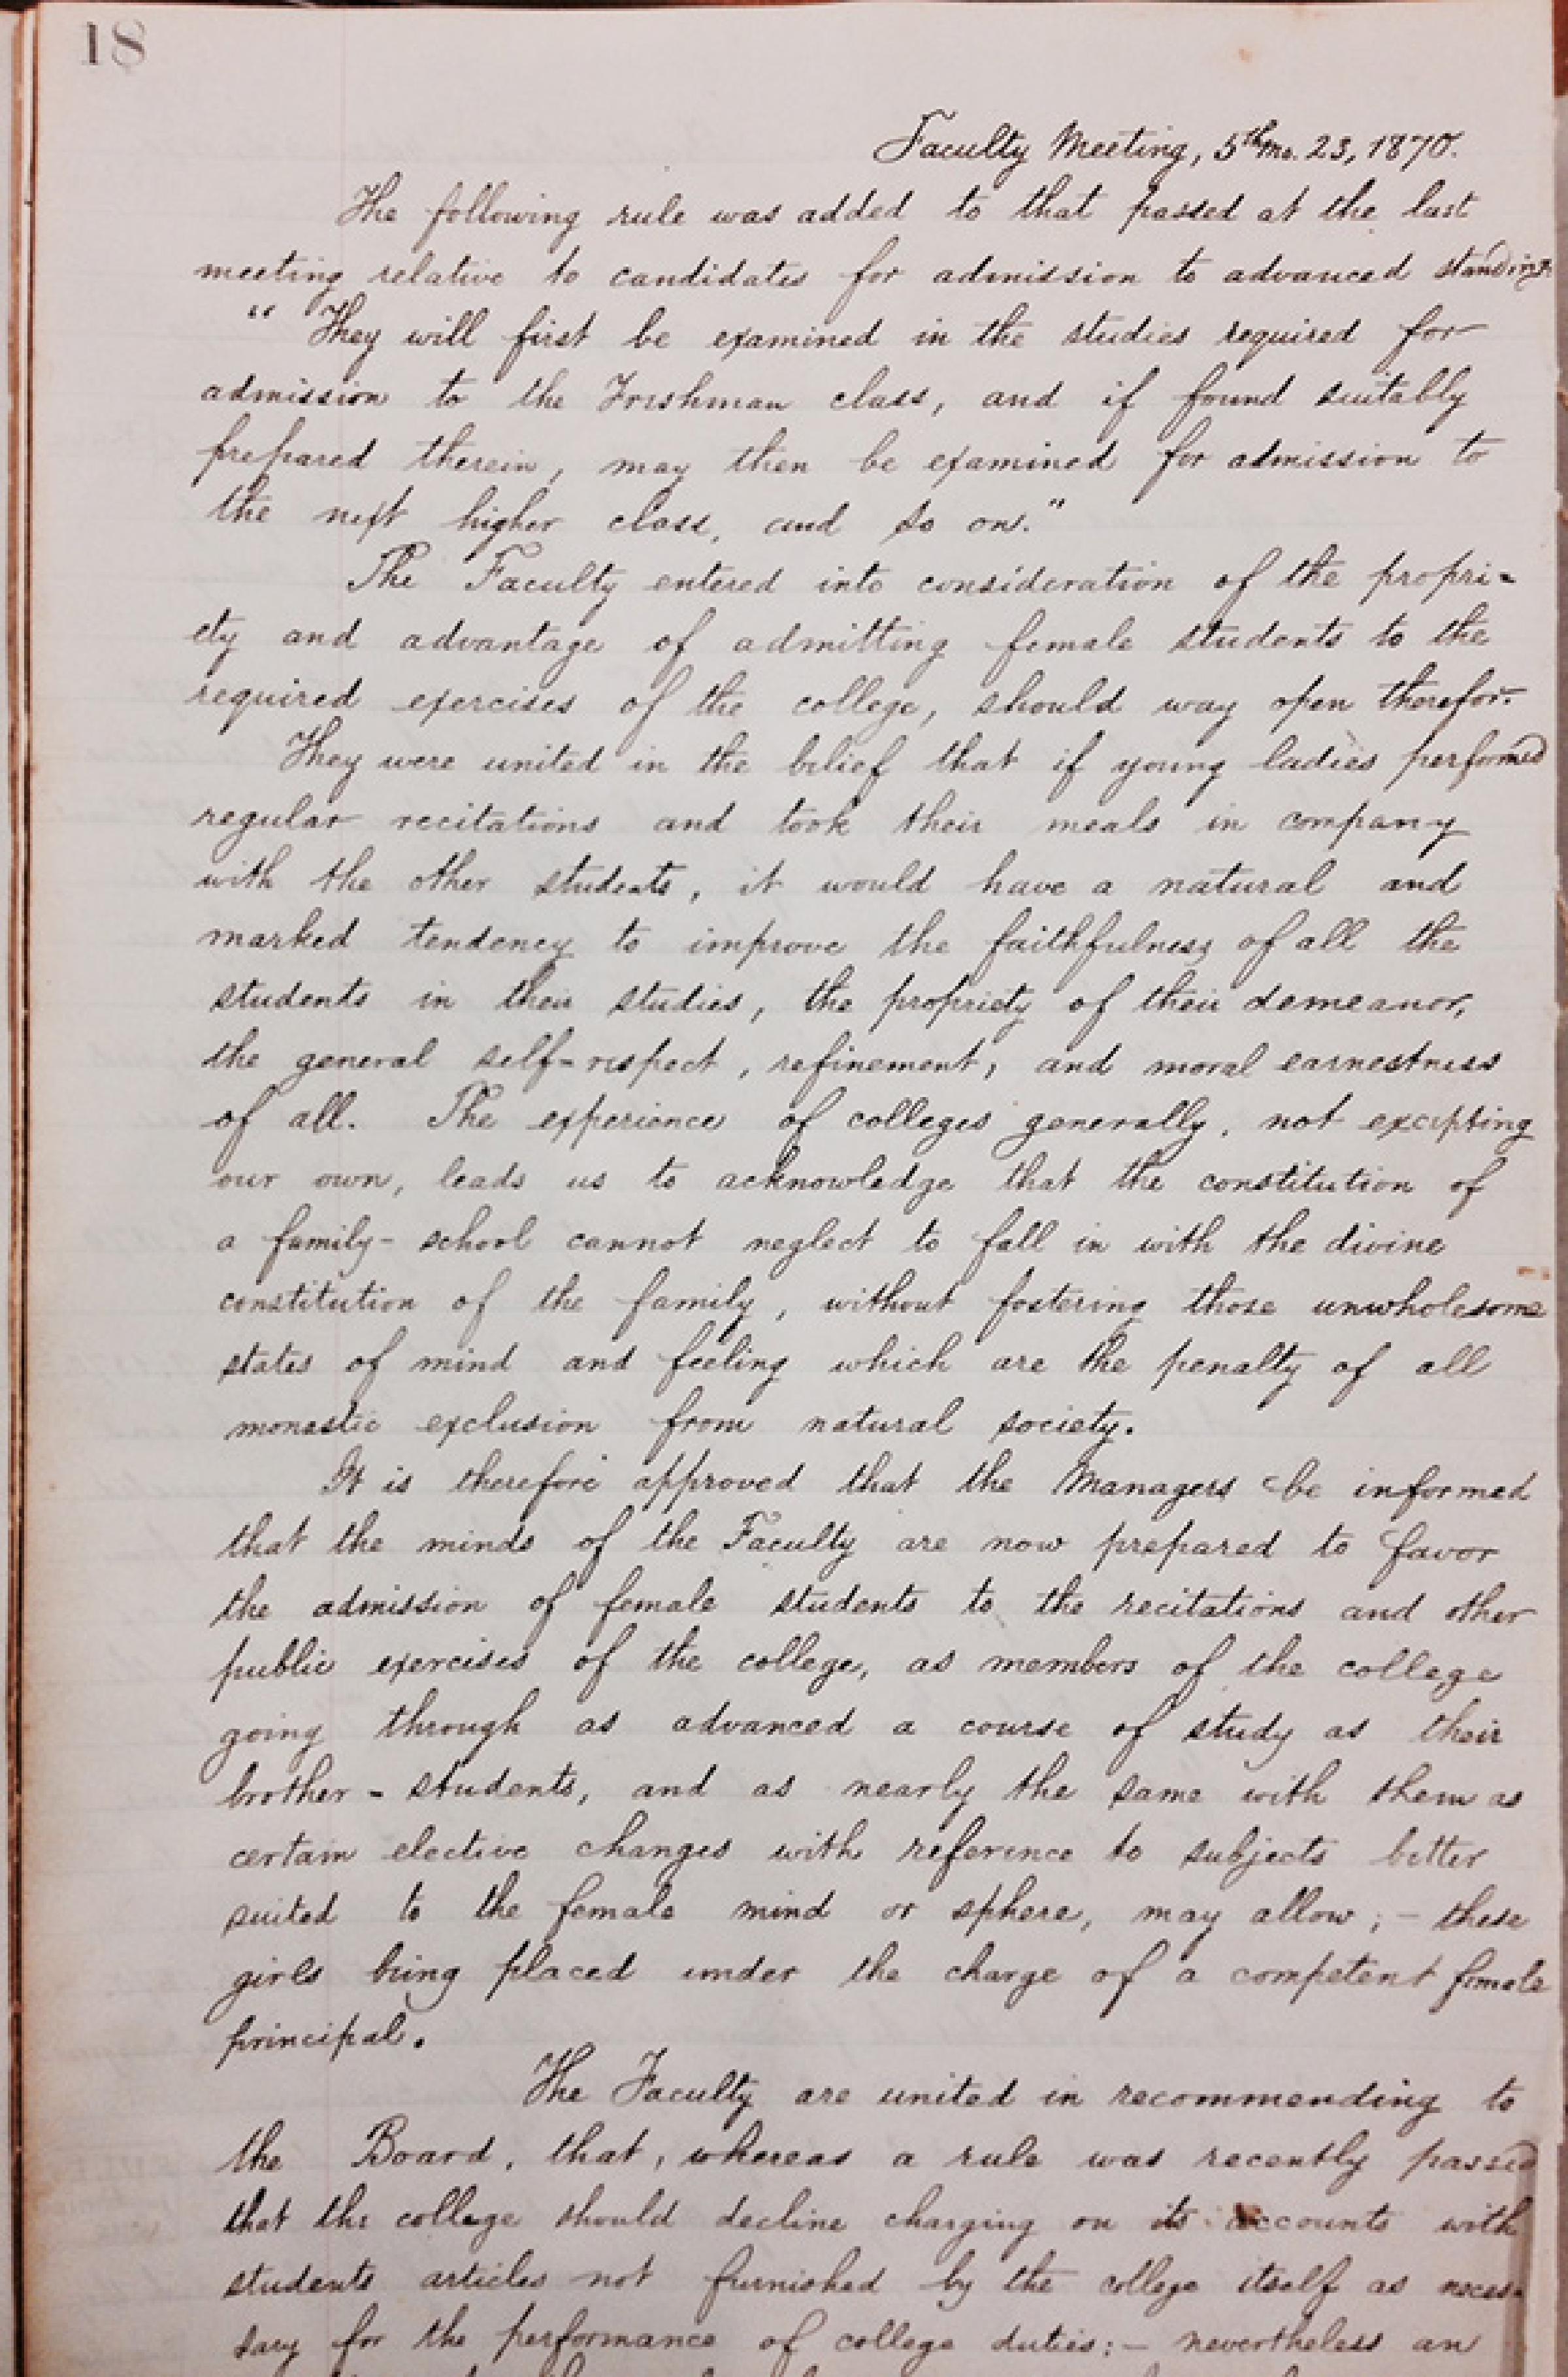 18
Faculty Meeting, 5th Mo. 23, 1870.
The following rule was added to that passed at the last
meeting relative to candidates for admission to advanced standing.
" They will first be examined in the studies required for
admission to the Freshman class, and if found suitably
prepared therein, may then be examined for admission to
the next higher class, and so on."
The Faculty entered into consideration of the propri-
ety and advantage of admitting female students to the
required exercises of the college, should way open therefor.
They were united in the belief that if young ladies performed
regular recitations and took their meals in company
with the other students, it would have a natural and
marked tendency to improve the faithfulness of all the
students in their studies, the propriety of their demeanor,
the general self-respect, refinement, and moral earnestness
of all. The experience of colleges generally, not excepting
our own, leads us to acknowledge that the constitution of
a family-school cannot neglect to fall in with the divine
constitution of the family, without fostering those unwholesome
states of mind and feeling which are the penalty of all
monastic exclusion from natural society.
It is therefore approved that the Managers be informed
that the minds of the Faculty are now prepared to favor
the admission of female students to the recitations and other
public exercises of the college, as members of the college
going through as advanced a course of study as their
brother-students, and as nearly the same with them as
certain elective changes with reference to subjects better
suited to the female mind or sphere, may allow; - these
girls being placed under the charge of a competent female
principal.
The Faculty are united in recommending to
the Board, that, whereas a rule was recently passed
that the college should decline charging on its accounts with
students articles not furnished by the college itself as neces-
sary for the performance of college duties: - nevertheless an